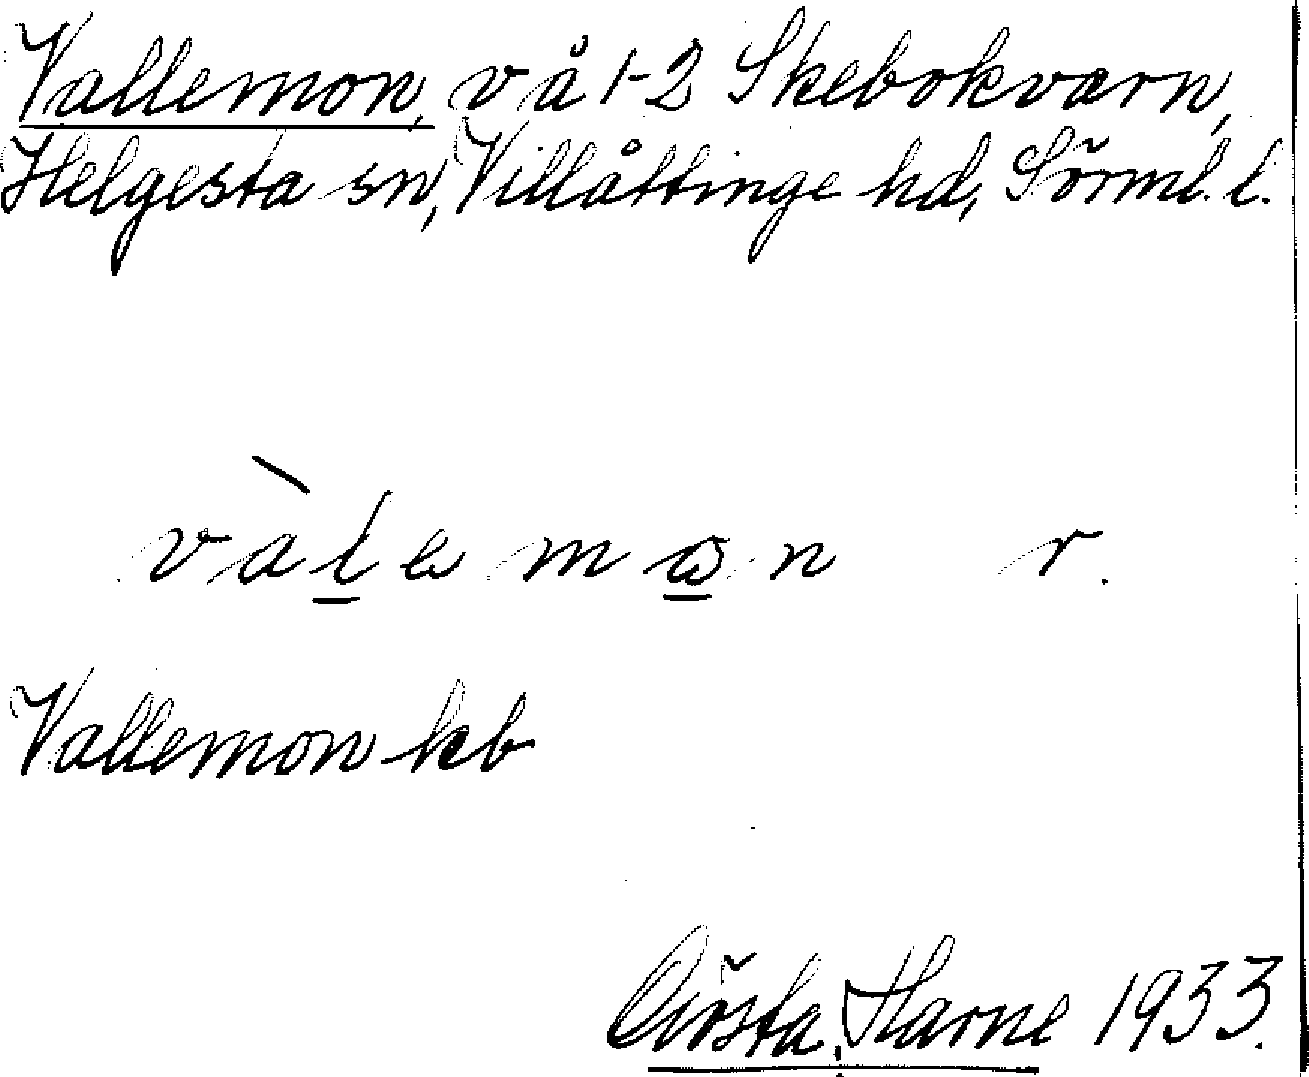 Vallemon, vå 1-2 Skebokvarn,
Helgesta sn, Villåttinge hd, Sörml. l.
vàlemωn r.
Vallemon kb
Gösta Harne 1933.